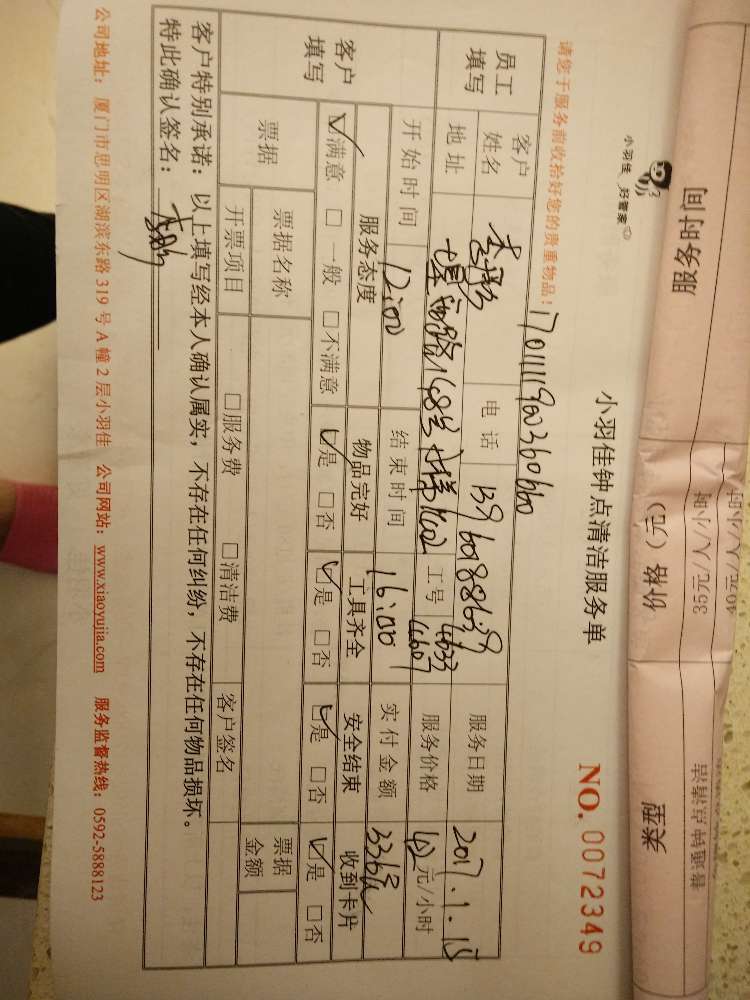 服务时间 价格（元） 类型
35元/人/小时
40元/人/小时 普通钟点清洁
小羽佳 好管家
小羽佳钟点清洁服务单
NO. 0072349
请您于服务前收拾好您的贵重物品！
员工填写 客户姓名 电话 服务日期 2017.1.15
地址 168号 工号 服务价格 元/小时
开始时间 12:00 结束时间 16:00 实付金额 336元
客户填写 服务态度 物品完好 工具齐全 安全结束 收到卡片
☑满意 □一般 □不满意 ☑是 □否 ☑是 □否 ☑是 □否 ☑是 □否
票据 票据名称 票据金额
开票项目 □服务费 □清洁费 客户签名
客户特别承诺：以上填写经本人确认属实，不存在任何纠纷，不存在任何物品损坏。
特此确认签名：
公司地址：厦门市思明区湖滨东路 319 号 A 幢 2 层小羽佳 公司网站：www.xiaoyujia.com 服务监督热线：0592-5888123